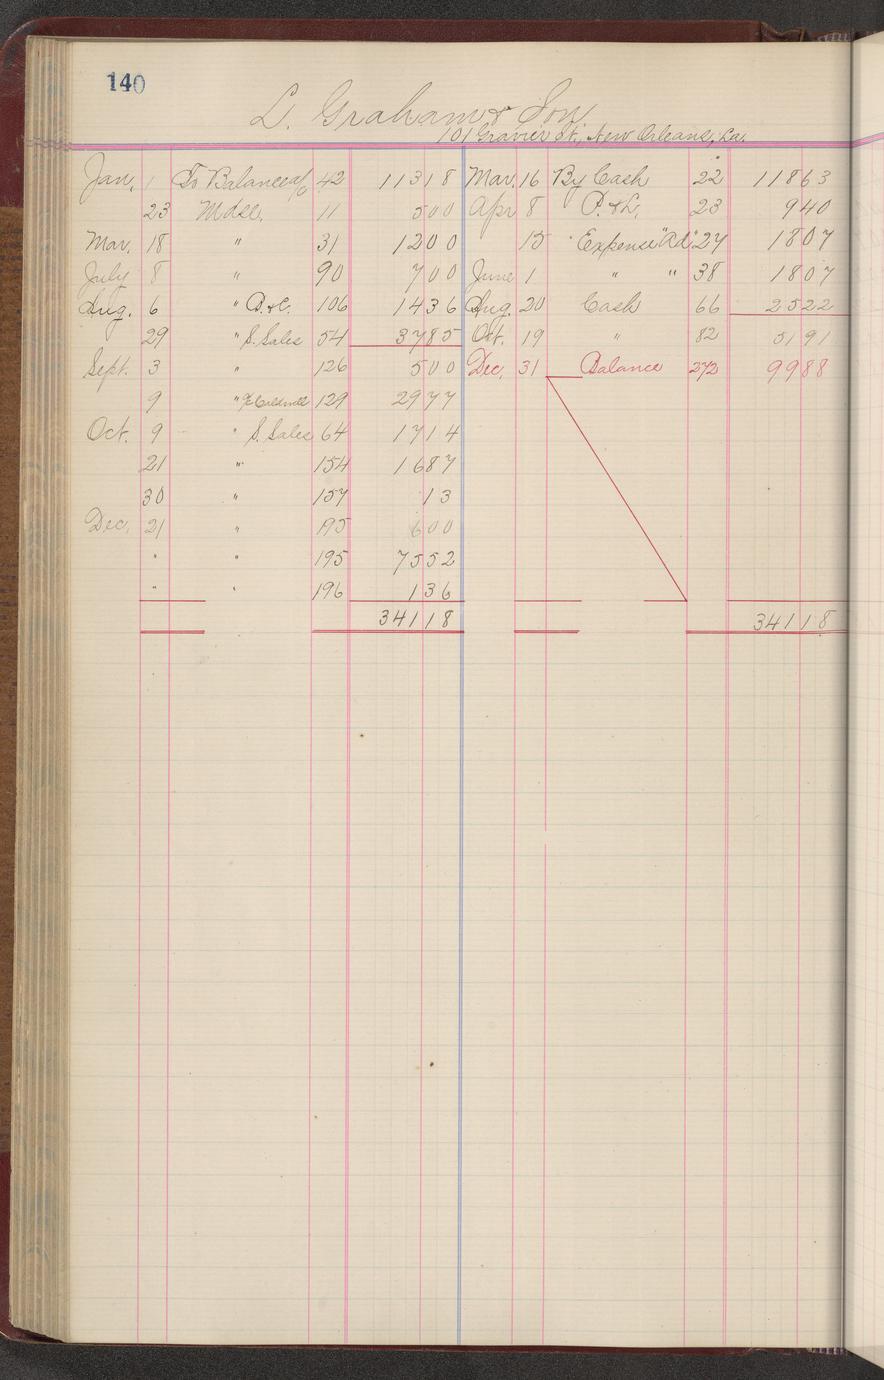 140
L. Graham & Son
101 Gravier St., New Orleans, La.
Jan. 1 To Balance a/c 42 113 18 Mar. 16 By Cash 22 118 63
23 Mdse. 11 5 00 Apr 8 P. & L. 23 9 40
Mar. 18 " 31 12 00 15 " Expense "Ad" 27 18 07
July 8 " 90 7 00 June 1 " " 38 18 07
Aug. 6 " P. & C. 106 14 36 Aug. 20 Cash 66 25 22
29 " S. Sales 54 37 85 Oct. 19 " 82 51 91
Sept. 3 " 126 5 00 Dec. 31 Balance 272 99 88
9 " 129 29 77
Oct. 9 " S. Sales 64 17 14
21 " 154 16 87
30 " 157 13
Dec. 21 " 195 6 00
" " 195 75 52
" " 196 1 36
341 18 341 18